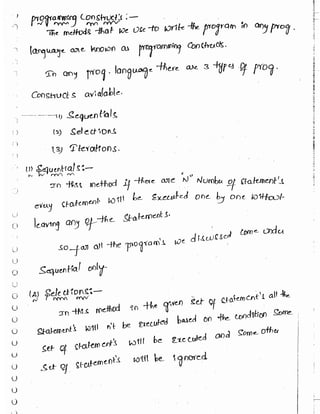 programming Constructs :—
The methods that we Use to write the program in any prog.
language are known as programming Constructs.
In any prog. language there are 3 types of prog.
Constructs avialable.
(1) Sequentials
(2) Selections
(3) Iterations.
(1) Sequentials :—
In this method if there are "N" Number of statement's
every statement will be Executed one by one without
leaving any of the Statements.
So far all the program's we discussed come under
Sequential only.
(2) Selections :—
In this method in the given set of statement's all the
Statement's will n't be Executed based on the condition Some
Set of statements will be Executed and Some other
Set of statements will be ignored.